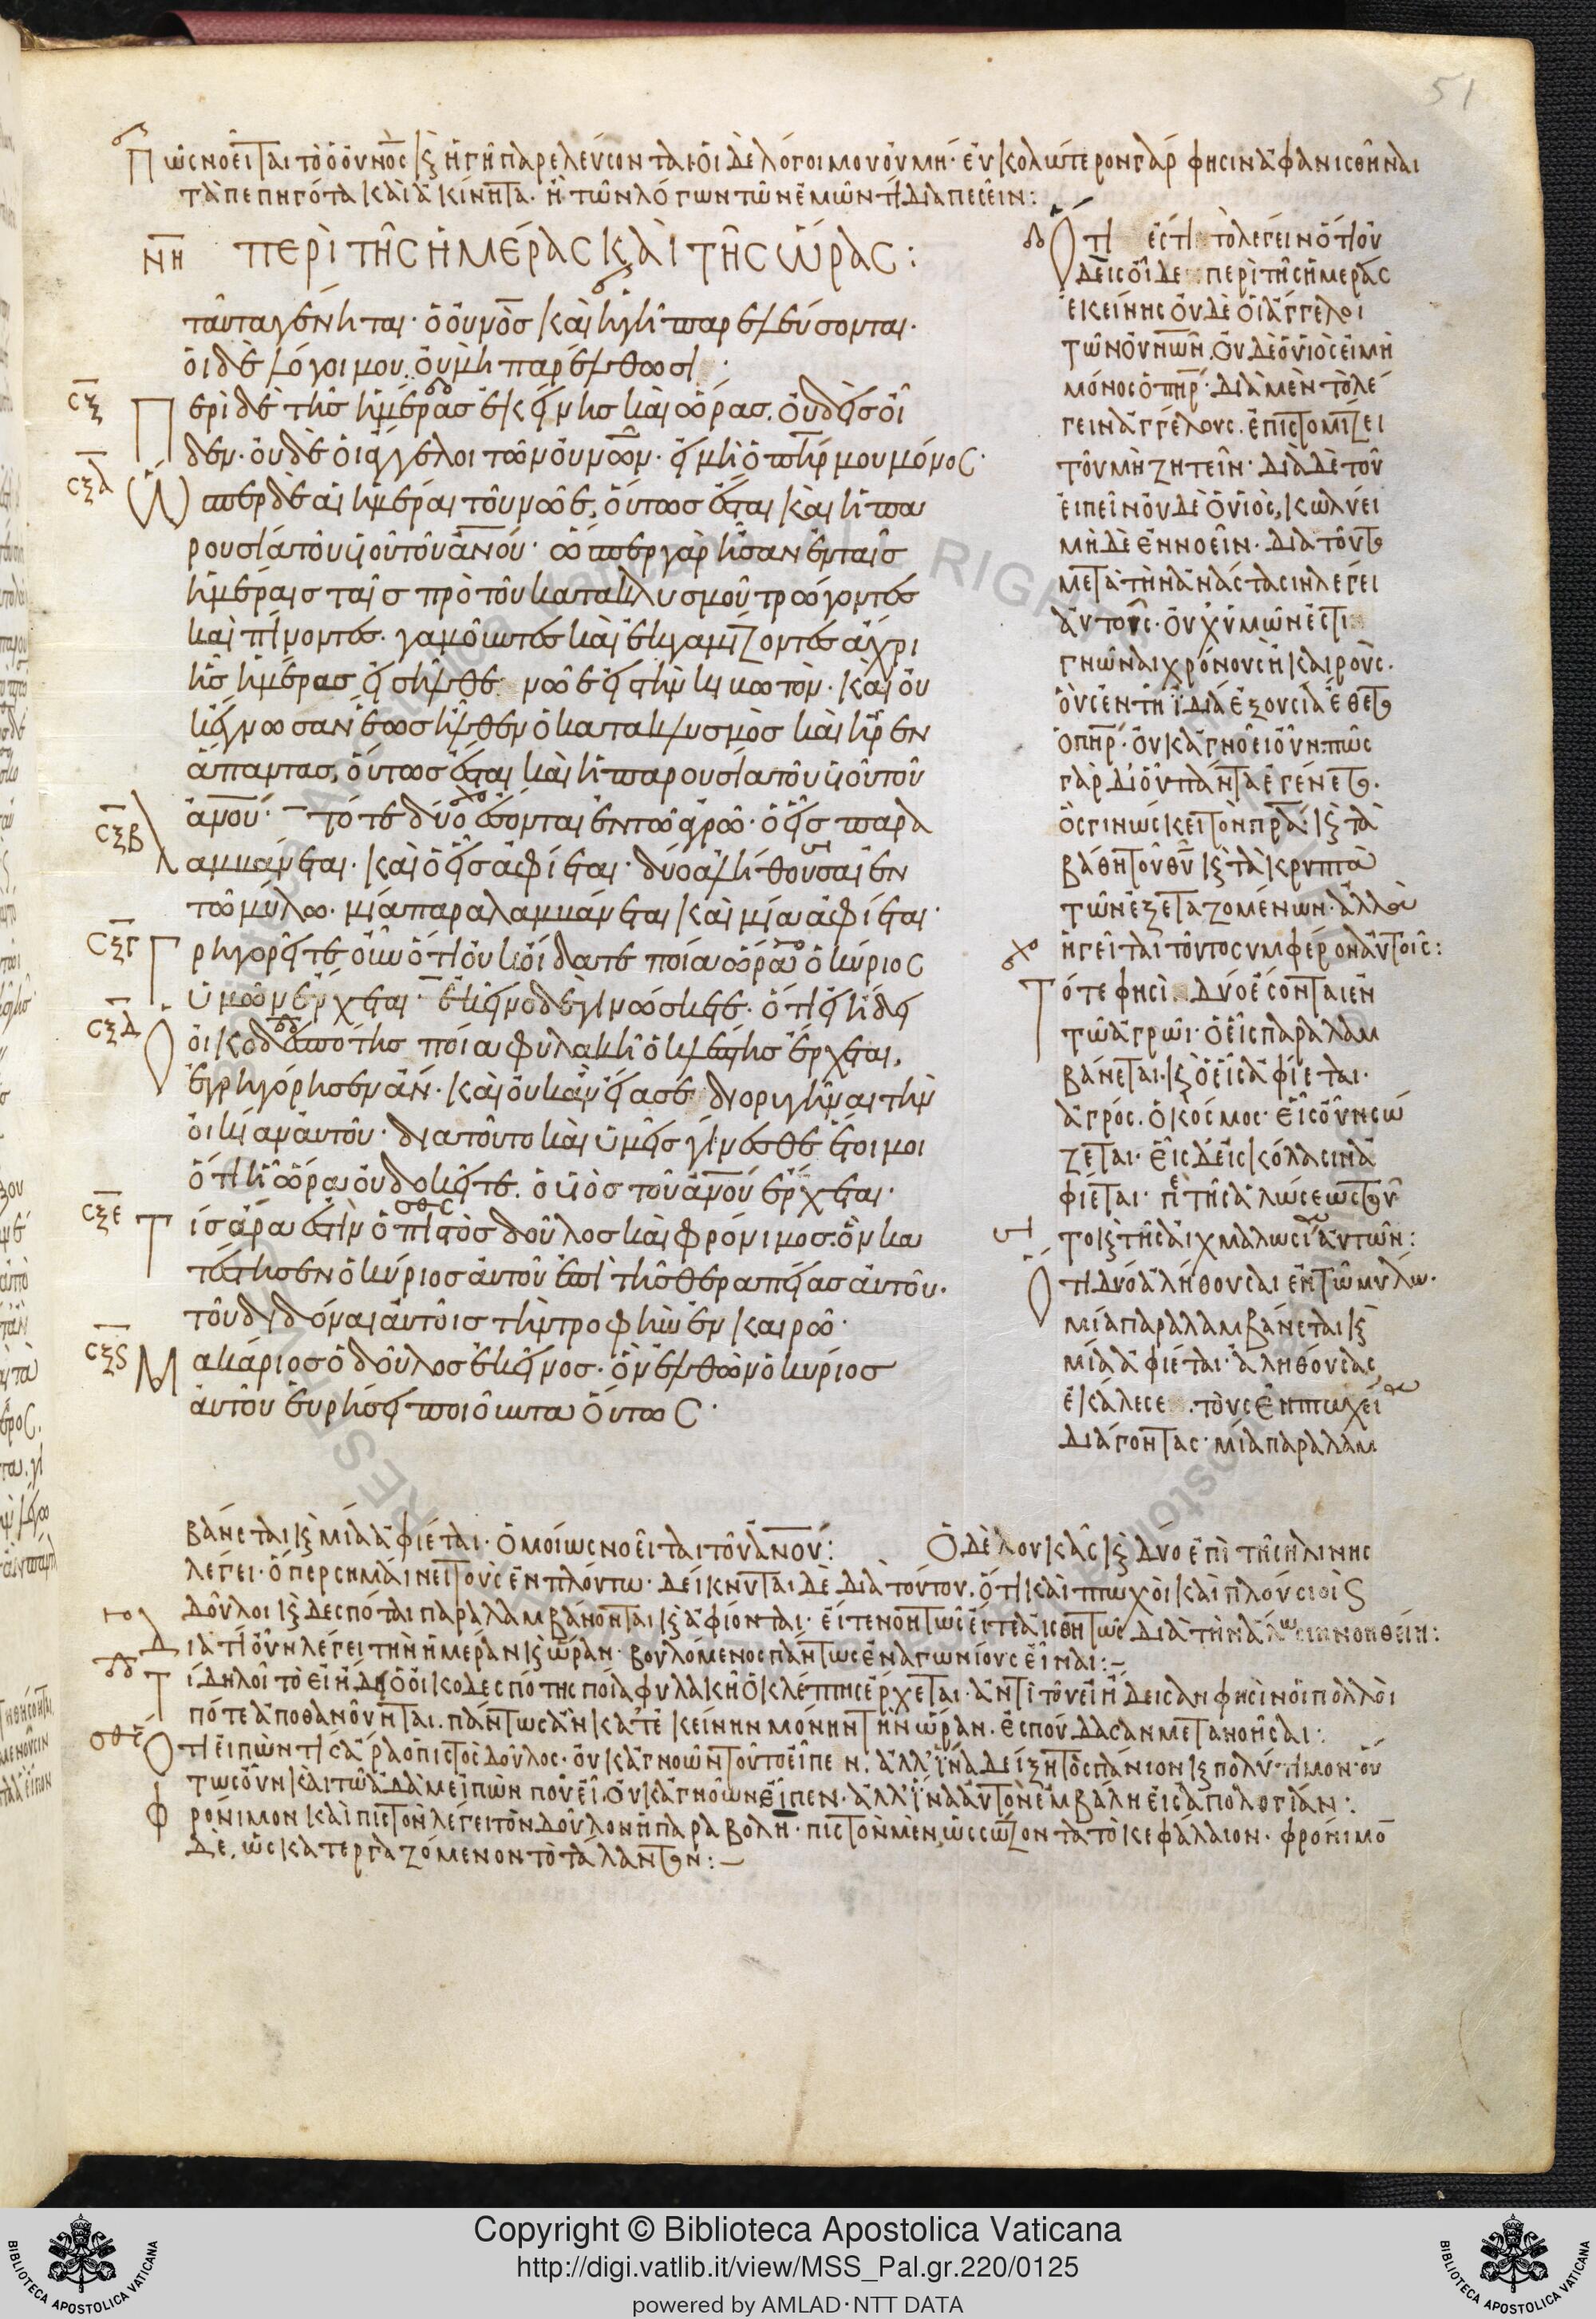 51
Πῶς νοεῖται τὸ ὁ οὐνὸς κ(αὶ) ἡ γῆ παρελεύσονται οἱ δὲ λόγοι μου οὐ μή· εὐκολώτερον γάρ φησιν ἀφανισθῆναι
τὰ πεπηγότα καὶ ἀκίνητα· ἢ τῶν λόγων τῶν ἐμῶν τὶ διαπεσεῖν:
ΝΗ ΠΕΡῚ ΤΗ͂Σ ἩΜΈΡΑΣ ΚΑῚ ΤΗ͂Σ ὭΡΑΣ:
ταῦτα γένηται· ὁ οὐνὸσ καὶ ἡ γῆ παρελεύσονται·
οἱ δὲ λόγοι μου οὐ μὴ παρέλθωσι·
σξ Περὶ δὲ τῆσ ἡμέρασ ἐκείνησ καὶ ὥρασ. οὐδεὶσ οἶ
δεν· οὐδὲ οἱ ἄγγελοι τῶν οὐνῶν· εἰ μὴ ὁ πὴρ μου μόνος·
σξα Ὥσπερ δὲ αἱ ἡμέραι τοῦ νῶε, οὕτωσ ἔσται καὶ ἡ πα
ρουσία τοῦ υἱοῦ τοῦ ἀνου· ὥσπερ γὰρ ἦσαν ἐν ταῖσ
ἡμέραισ ταῖσ πρὸ τοῦ κατακλυσμοῦ τρώγοντεσ
καὶ πίνοντεσ· γαμοῦντεσ καὶ ἐκγαμίζοντεσ ἄχρι
ἧσ ἡμέρασ εἰσῆλθε νῶε εἰσ τὴν κιβωτόν· καὶ οὐ
κ ἔγνωσαν ἕωσ ἦλθεν ὁ κατακλυσμὸσ καὶ ἦρεν
ἅπαντασ, οὕτωσ ἔσται καὶ ἡ παρουσία τοῦ υἱοῦ τοῦ
σξβ ἀνου· τότε δύο ἔσονται ἐν τῶ ἀγρῶ· ὁ εἷσ παρα
λαμβάνεται· καὶ ὁ εἷσ ἀφίεται· δύο ἀλήθουσαι ἐν
τῶ μύλω· μία παραλαμβάνεται καὶ μία ἀφίεται·
σξγ Γρηγορεῖτε οὖν ὅτι οὐκ οἴδατε ποία ὥρα ὁ κύριος
ὑμῶν ἔρχεται· ἐκεῖνο δὲ γινώσκετε· ὅτι εἰ ἤδει
σξδ Ὁ οἰκοδεσπότησ ποία φυλακῆ ὁ κλέπτησ ἔρχεται,
ἐγρηγόρησεν ἄν· καὶ οὐκ ἂν εἴασε διορυγῆναι τὴν
οἰκίαν αὐτοῦ· διατοῦτο καὶ ὑμεῖσ γίνεσθε ἕτοιμοι
ὅτι ἧ ὥρα οὐ δοκεῖτε. ὁ υἱὸσ τοῦ ἀνου ἔρχεται·
σξε Τίσ ἄρα ἐστὶν ὁ πιστὸσ δοῦλοσ καὶ φρόνιμοσ. ὃν κα
τέστησεν ὁ κύριοσ αὐτοῦ ἐπὶ τῆσ θεραπείασ αὐτοῦ·
τοῦ διδόναι αὐτοῖσ τὴν τροφὴν ἐν καιρῶ·
σξς Μακάριοσ ὁ δοῦλοσ ἐκεῖνοσ· ὃν ἐλθὼν ὁ κύριοσ
αὐτοῦ εὑρήσει ποιοῦντα οὕτως·
Ὅτι ἐστὶ τὸ λέγειν ὅτι οὐ
δεὶς οἶδε περὶ τῆς ἡμέρας
ἐκείνης οὐδὲ οἱ ἄγγελοι
τῶν οὐνῶν. οὐδὲ ὁ υἱὸς εἰ μὴ
μόνος ὁ πηρ· διὰ μὲν τὸ λέ
γειν ἀγγέλους. ἐπιστομίζει
τοῦ μὴ ζητεῖν· διὰ δὲ τοῦ
εἰπεῖν οὐδὲ ὁ υἱὸς, κωλύει
μηδὲ ἐννοεῖν· διὰ τοῦτο
μετὰ τὴν ἀνάστασιν λέγει
αὐτοῖς· οὐχ ὑμῶν ἐστι
γνῶναι χρόνους ἢ καιροὺς·
οὓς ἐν τῆ ἰδία ἐξουσία ἔθετο
ὁ πηρ· οὐκ ἀγνοεῖ οὖν· πῶς
γὰρ δι' οὗ πάντα ἐγένετο·
ὃς γινώσκει τὸν πρα· κ(αὶ) τὰ
βάθη τοῦ θυ κ(αὶ) τὰ κρυπτὰ
τῶν ἐξεταζομένων· ἀλλὰ
ἡγεῖται τοῦτο συμφέρον αὐτοῖς:
Τότε φησὶ δύο ἔσονται ἐν
τῶ ἀγρῶι· ὁ εἷς παραλαμ
βάνεται· κ(αὶ) ὁ εἷς ἀφίεται·
ἀγρός. ὁ κόσμος· εἷς οὖν σώ
ζεται· εἷς δὲ εἰς κόλασιν ἀ
φίεται· π τῆς ἁλώσεως τοῦ
το κ(αὶ) τῆς αἰχμαλωσί αὐτῶν:
Ὅτι δύο ἀλήθουσαι ἐν τῶ μύλω·
μία παραλαμβάνεται κ(αὶ)
μία ἀφιέται· ἀληθούσας
ἐκάλεσε τοὺς ἐν πτωχεί
διάγοντας· μία παραλαμ
βάνεται κ(αὶ) μία ἀφιέται· ὁμοίως νοεῖται τοῦ ἀνου: Ὁ δὲ λουκᾶς κ(αὶ) δύο ἐπὶ τῆς κλίνης
λέγει· ὅπερ σημαίνει τοὺς ἐν πλούτω· δείκνυται δὲ διὰ τούτου. ὅτι καὶ πτωχοὶ καὶ πλούσιοι κ(αὶ)
δοῦλοι κ(αὶ) δεσπόται παραλαμβάνονται κ(αὶ) ἀφίονται· εἴτε νοητῶς εἴτε αἰσθητῶς διὰ τὴν ἅλωσιν νοηθείη:
Διατί οὖν λέγει τὴν ἡμέραν κ(αὶ) ὥραν· βουλόμενος πάντως ἐναγωνίους εἶναι:–
Τί δηλοῖ τὸ εἰ ἤδει ὁ οἰκοδεσπότης ποία φυλακῆ ὁ κλέπτης ἔρχεται· ἀντὶ τοῦ εἰ ἤδεισαν φησὶν οἱ πολλοὶ
πότε ἀποθανοῦνται. πάντως ἂν κατ' ἐκείνην μόνην τὴν ὥραν. ἐσπούδασαν μετανοῆσαι:
Ὅτι εἰπὼν τίς ἄρα ὁ πιστὸς δοῦλος· οὐκ ἀγνοῶν τοῦτο εἶπεν. ἀλλ' ἵνα δείξη τὸ σπάνιον κ(αὶ) πολύτιμον· οὕ
τως οὖν καὶ τῶ ἀδὰμ εἰπὼν ποῦ εἶ. οὐκ ἀγνοῶν εἶπεν· ἀλλ' ἵνα αὐτὸν ἐμβάλη εἰς ἀπολογίαν:
Φρόνιμον καὶ πιστὸν λέγει τὸν δοῦλον ἡ παραβολὴ· πιστὸν μὲν ὡς σώζοντα τὸ κεφάλαιον· φρόνιμο
δὲ, ὡς κατεργαζόμενον τὸ τάλαντον:–
Copyright © Biblioteca Apostolica Vaticana
http://digi.vatlib.it/view/MSS_Pal.gr.220/0125
powered by AMLAD·NTT DATA
BIBLIOTECA APOSTOLICA VATICANA
BIBLIOTECA APOSTOLICA VATICANA